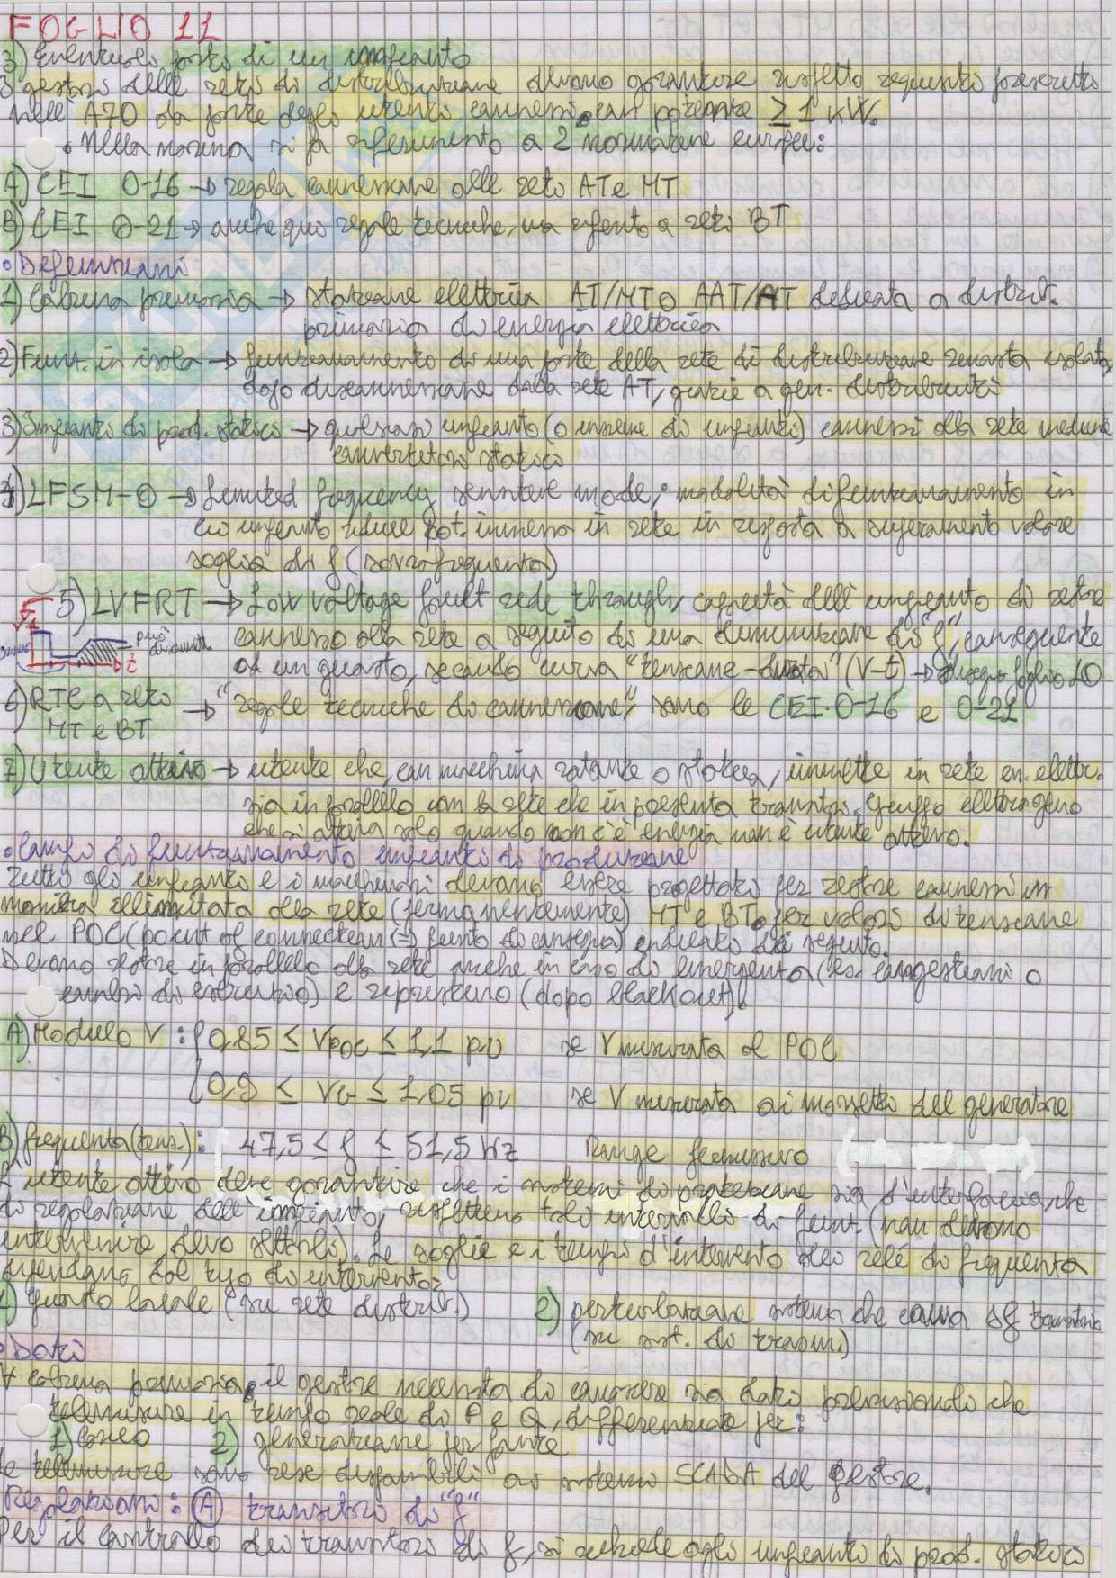 FOGLIO 11
3) Eventuale parte di un impianto
I gestori delle reti di distribuzione devono garantire rispetto requisiti prescritti
nell'A70 da parte degli utenti connessi con potenza ≥ 1 kW.
• Nella norma si fa riferimento a 2 normative europee:
A) CEI 0-16 → regola connessione alle reti AT e MT
B) CEI 0-21 → anche qui regole tecniche, ma riferito a reti BT
• Definizioni
1) Cabina primaria → stazione elettrica AT/MT o AAT/AT dedicata a distrib.
primaria di energia elettrica
2) Funz. in isola → funzionamento di una parte della rete di distribuzione rimasta isolata
dopo disconnessione dalla rete AT, grazie a gen. distribuiti
3) Impianto di prod. statico → qualsiasi impianto (o insieme di impianti) connessi alla rete mediante
convertitori statici
4) LFSM-O → Limited frequency sensitive mode: modalità di funzionamento in
cui impianto riduce pot. immessa in rete in risposta a superamento valore
soglia di f (sovrafrequenza)
5) LVFRT → Low voltage fault ride through, capacità dell'impianto di restare
connesso alla rete a seguito di una diminuzione di conseguente
ad un guasto, secondo curva "tensione-durata" (V-t) → disegno foglio 10
6) RTC a reti → "regole tecniche di connessione", sono le CEI 0-16 e 0-21
MT e BT
7) Utente attivo → utente che, con macchina rotante o statica, immette in rete en. elettr.
sia in parallelo con la rete che in presenza transitori. Gruppo elettrogeno
che si attiva solo quando non c'è energia non è utente attivo.
• Campo di funzionamento impianti di produzione
Tutti gli impianti e i macchinari devono essere progettati per restare connessi in
maniera illimitata alla rete (permanentemente) MT e BT, per valori di tensione
nel POC (point of connection (=) punto di consegna) indicati di seguito.
Devono restare in parallelo alla rete anche in caso di emergenza (es. congestioni o
di esercizio) e ripristino (dopo blackout)!
A) Modulo V: { 0,85 ≤ VPOC ≤ 1,1 pu se V misurata al POC
{ 0,9 ≤ VG ≤ 1,05 pu se V misurata ai morsetti del generatore
B) frequenza (tens.): 47,5 ≤ f ≤ 51,5 Hz Range
L'utente attivo deve garantire che i sistemi di protezione sia d'interfaccia, che
di regolazione dell'impianto, rispettino tali intervalli di funz. (non devono
intervenire, devo settarli). Le soglie e i tempi d'intervento dei relé di frequenza
dipendono dal tipo di intervento:
1) guasto locale (su rete distrib.) 2) perturbazione sistema che causa Δf transitoria
(su sist. di trasm.)
• Dati
∀ cabina primaria, il gestore necessita di conoscere sia dati previsionali che
telemisure in tempo reale di P e Q, differenziate per:
1) carico 2) generazione per fonte
Le telemisure sono rese disponibili ai sistemi SCADA del gestore.
Regolazioni: (A) transitori di "f"
Per il controllo dei transitori di f, si richiede agli impianti di prod. statici